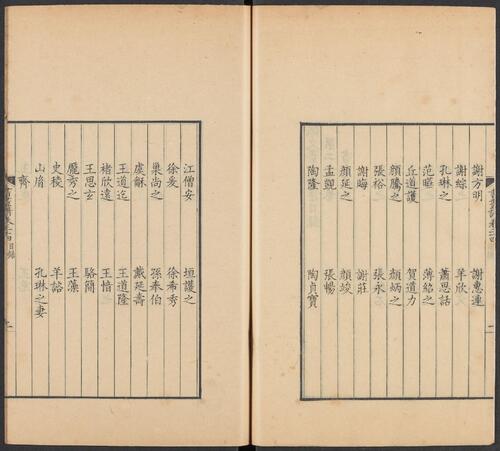 謝方明　謝惠連
謝綜　羊欣
孔琳之　蕭思話
范曄　薄紹之
丘道護　賀道力
顏騰之　顏炳之
張裕　張永
謝晦　謝莊
顏延之　顏竣
孟顗　張暢
陶隆　陶貞寶
江僧安　垣護之
徐爰　徐希秀
巢尚之　孫奉伯
虞龢　戴延壽
王道迄　王道隆
褚欣遠　王愔
王思玄　駱簡
龐秀之　王藻
史稜　羊諮
山胤　孔琳之妻
齊